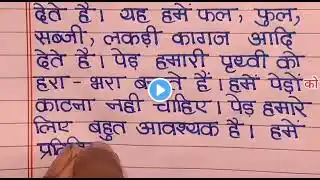 देते है। यह हमें फल, फुल,
सब्जी, लकड़ी कागज आदि
देते है। पेड़ हमारी पृथ्वी को
हरा-भरा बनाते हैं। हमें पेड़ों को
काटना नही चाहिए। पेड़ हमारे
लिए बहुत आवश्यक है। हमें